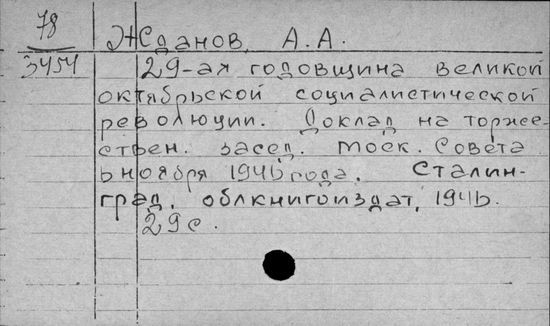 78 Жданов, А. А.
3454 29-ая годовщина великой
октябрьской социалистической
революции. Доклад на торже-
ствен. засед. Моск. Совета
6 ноября 1946 года. Сталин-
град, облкнигоиздат, 1946.
29 с.